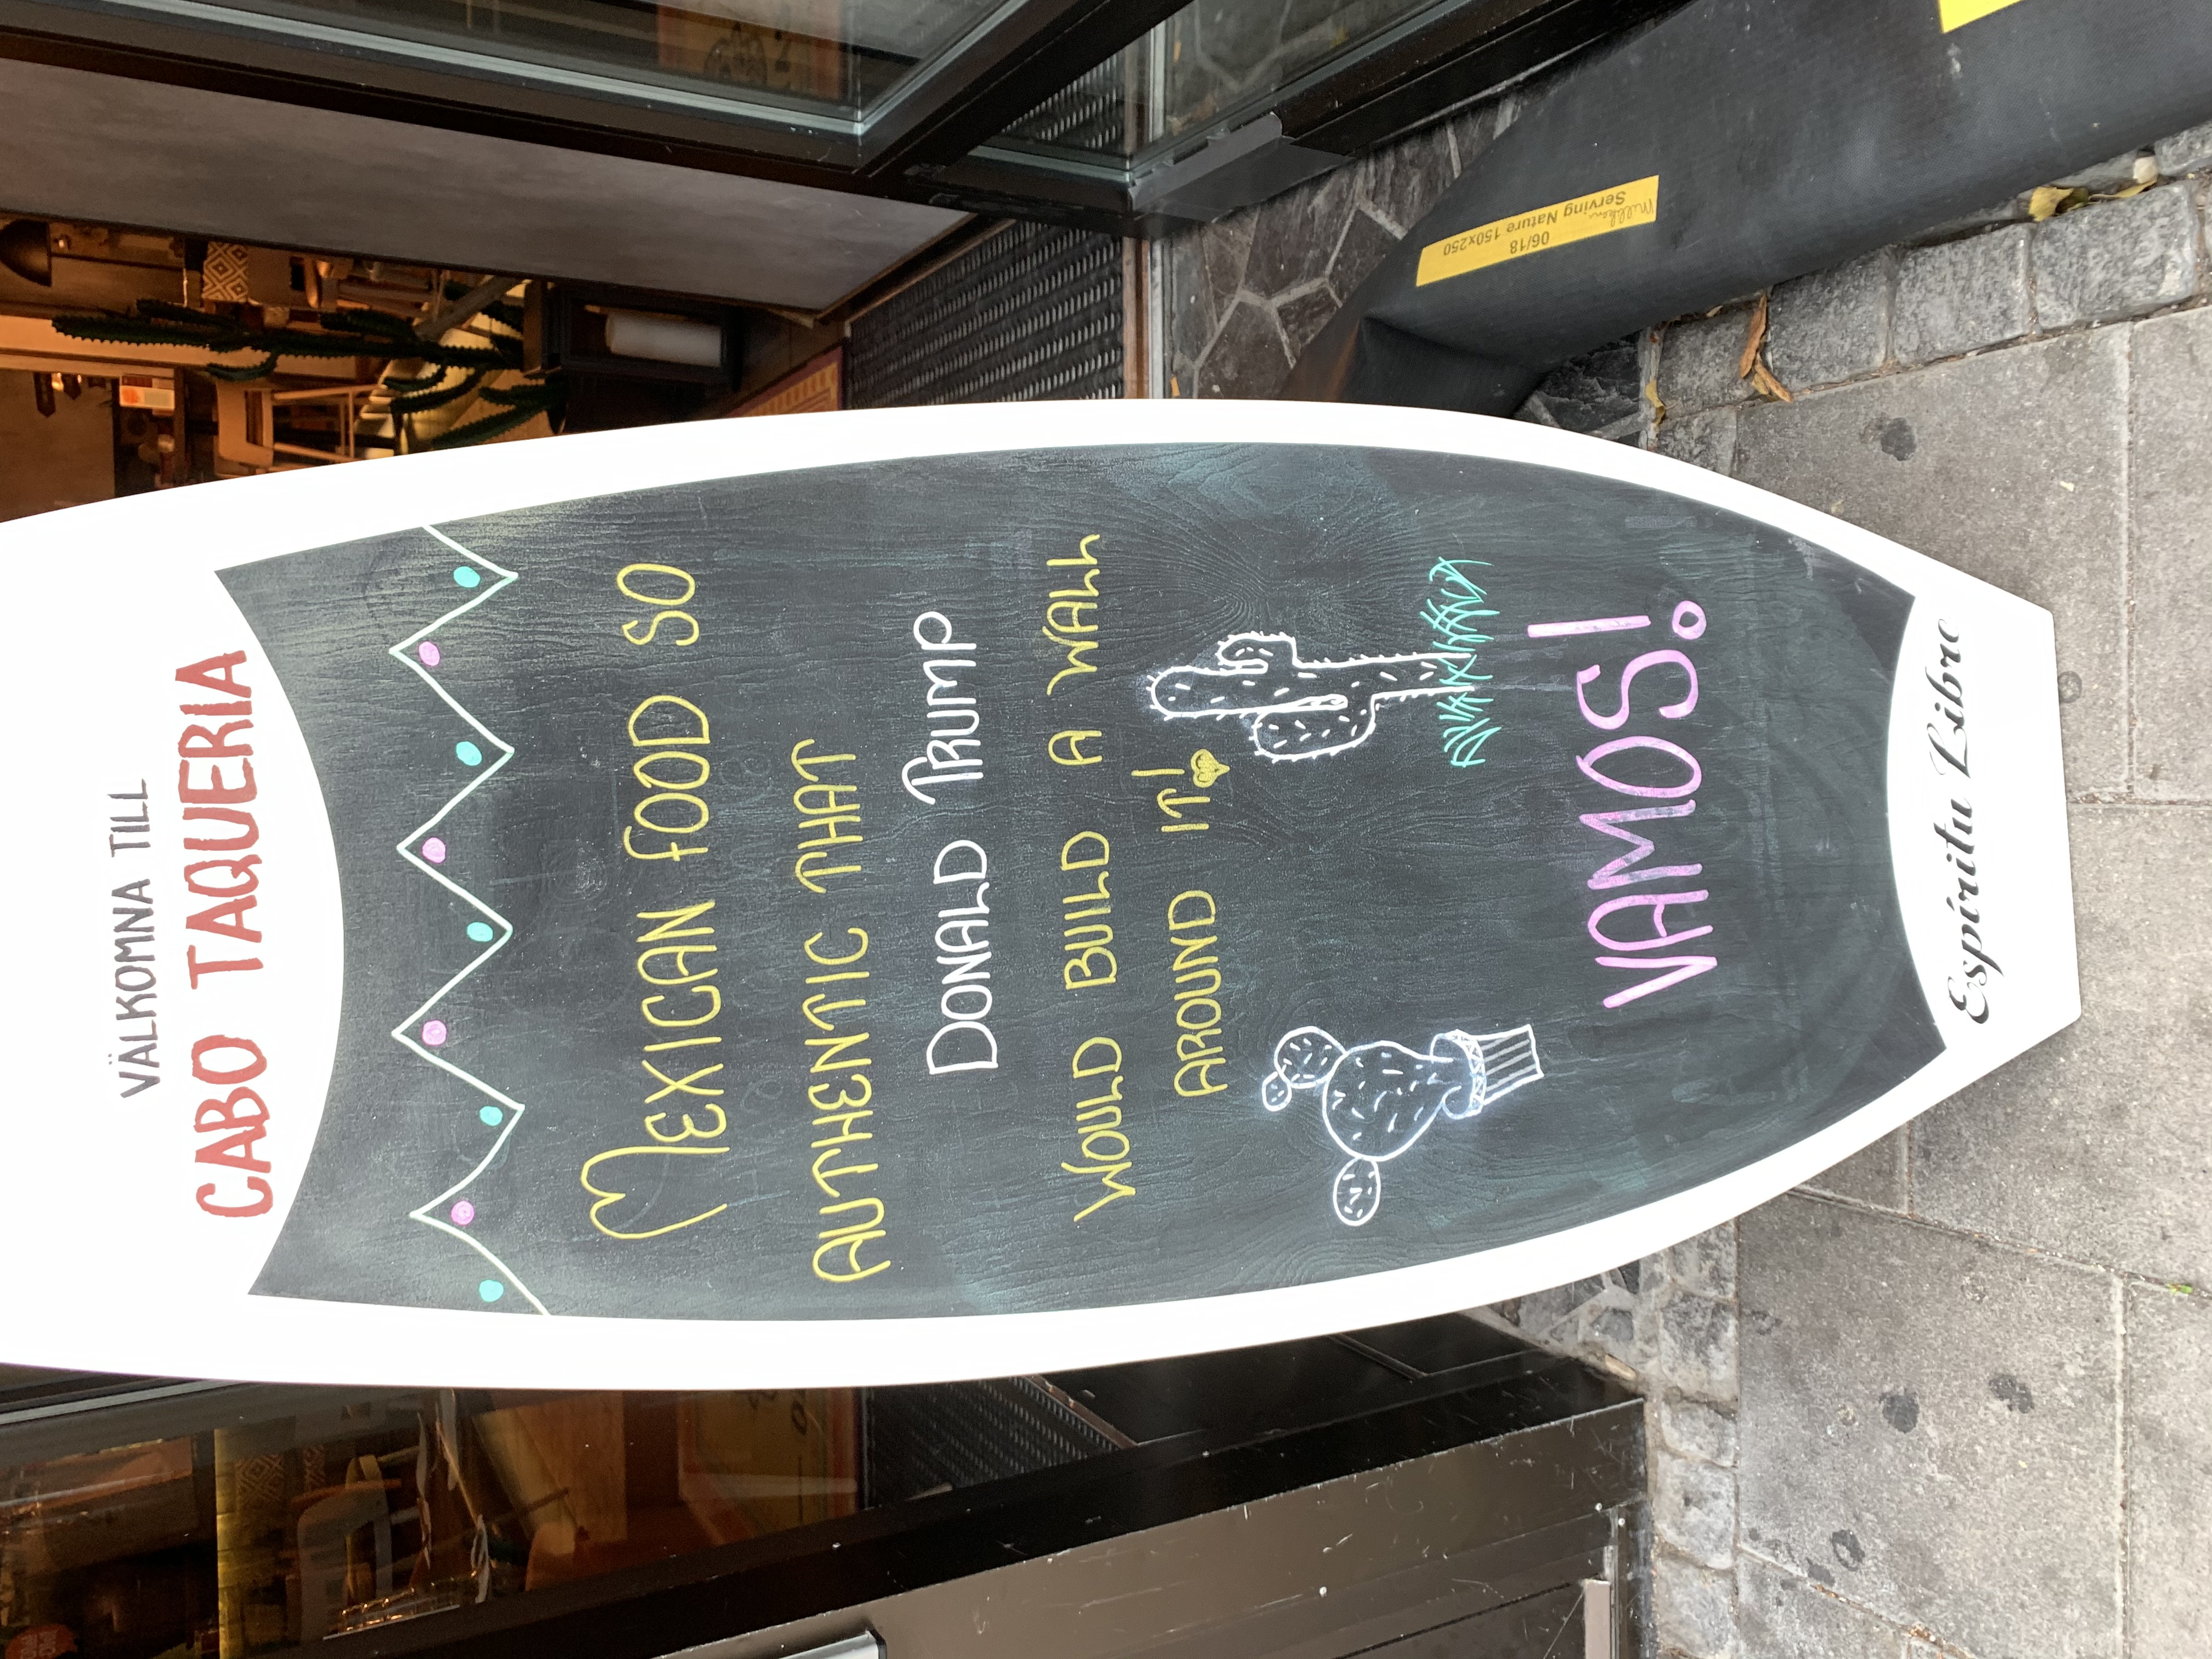 VÄLKOMNA TILL
CABO TAQUERIA
MEXICAN FOOD SO
AUTHENTIC THAT
DONALD TRUMP
WOULD BUILD A WALL
AROUND IT!
VAMOS!
Espíritu Libre
Serving Nature 150x250
06/18